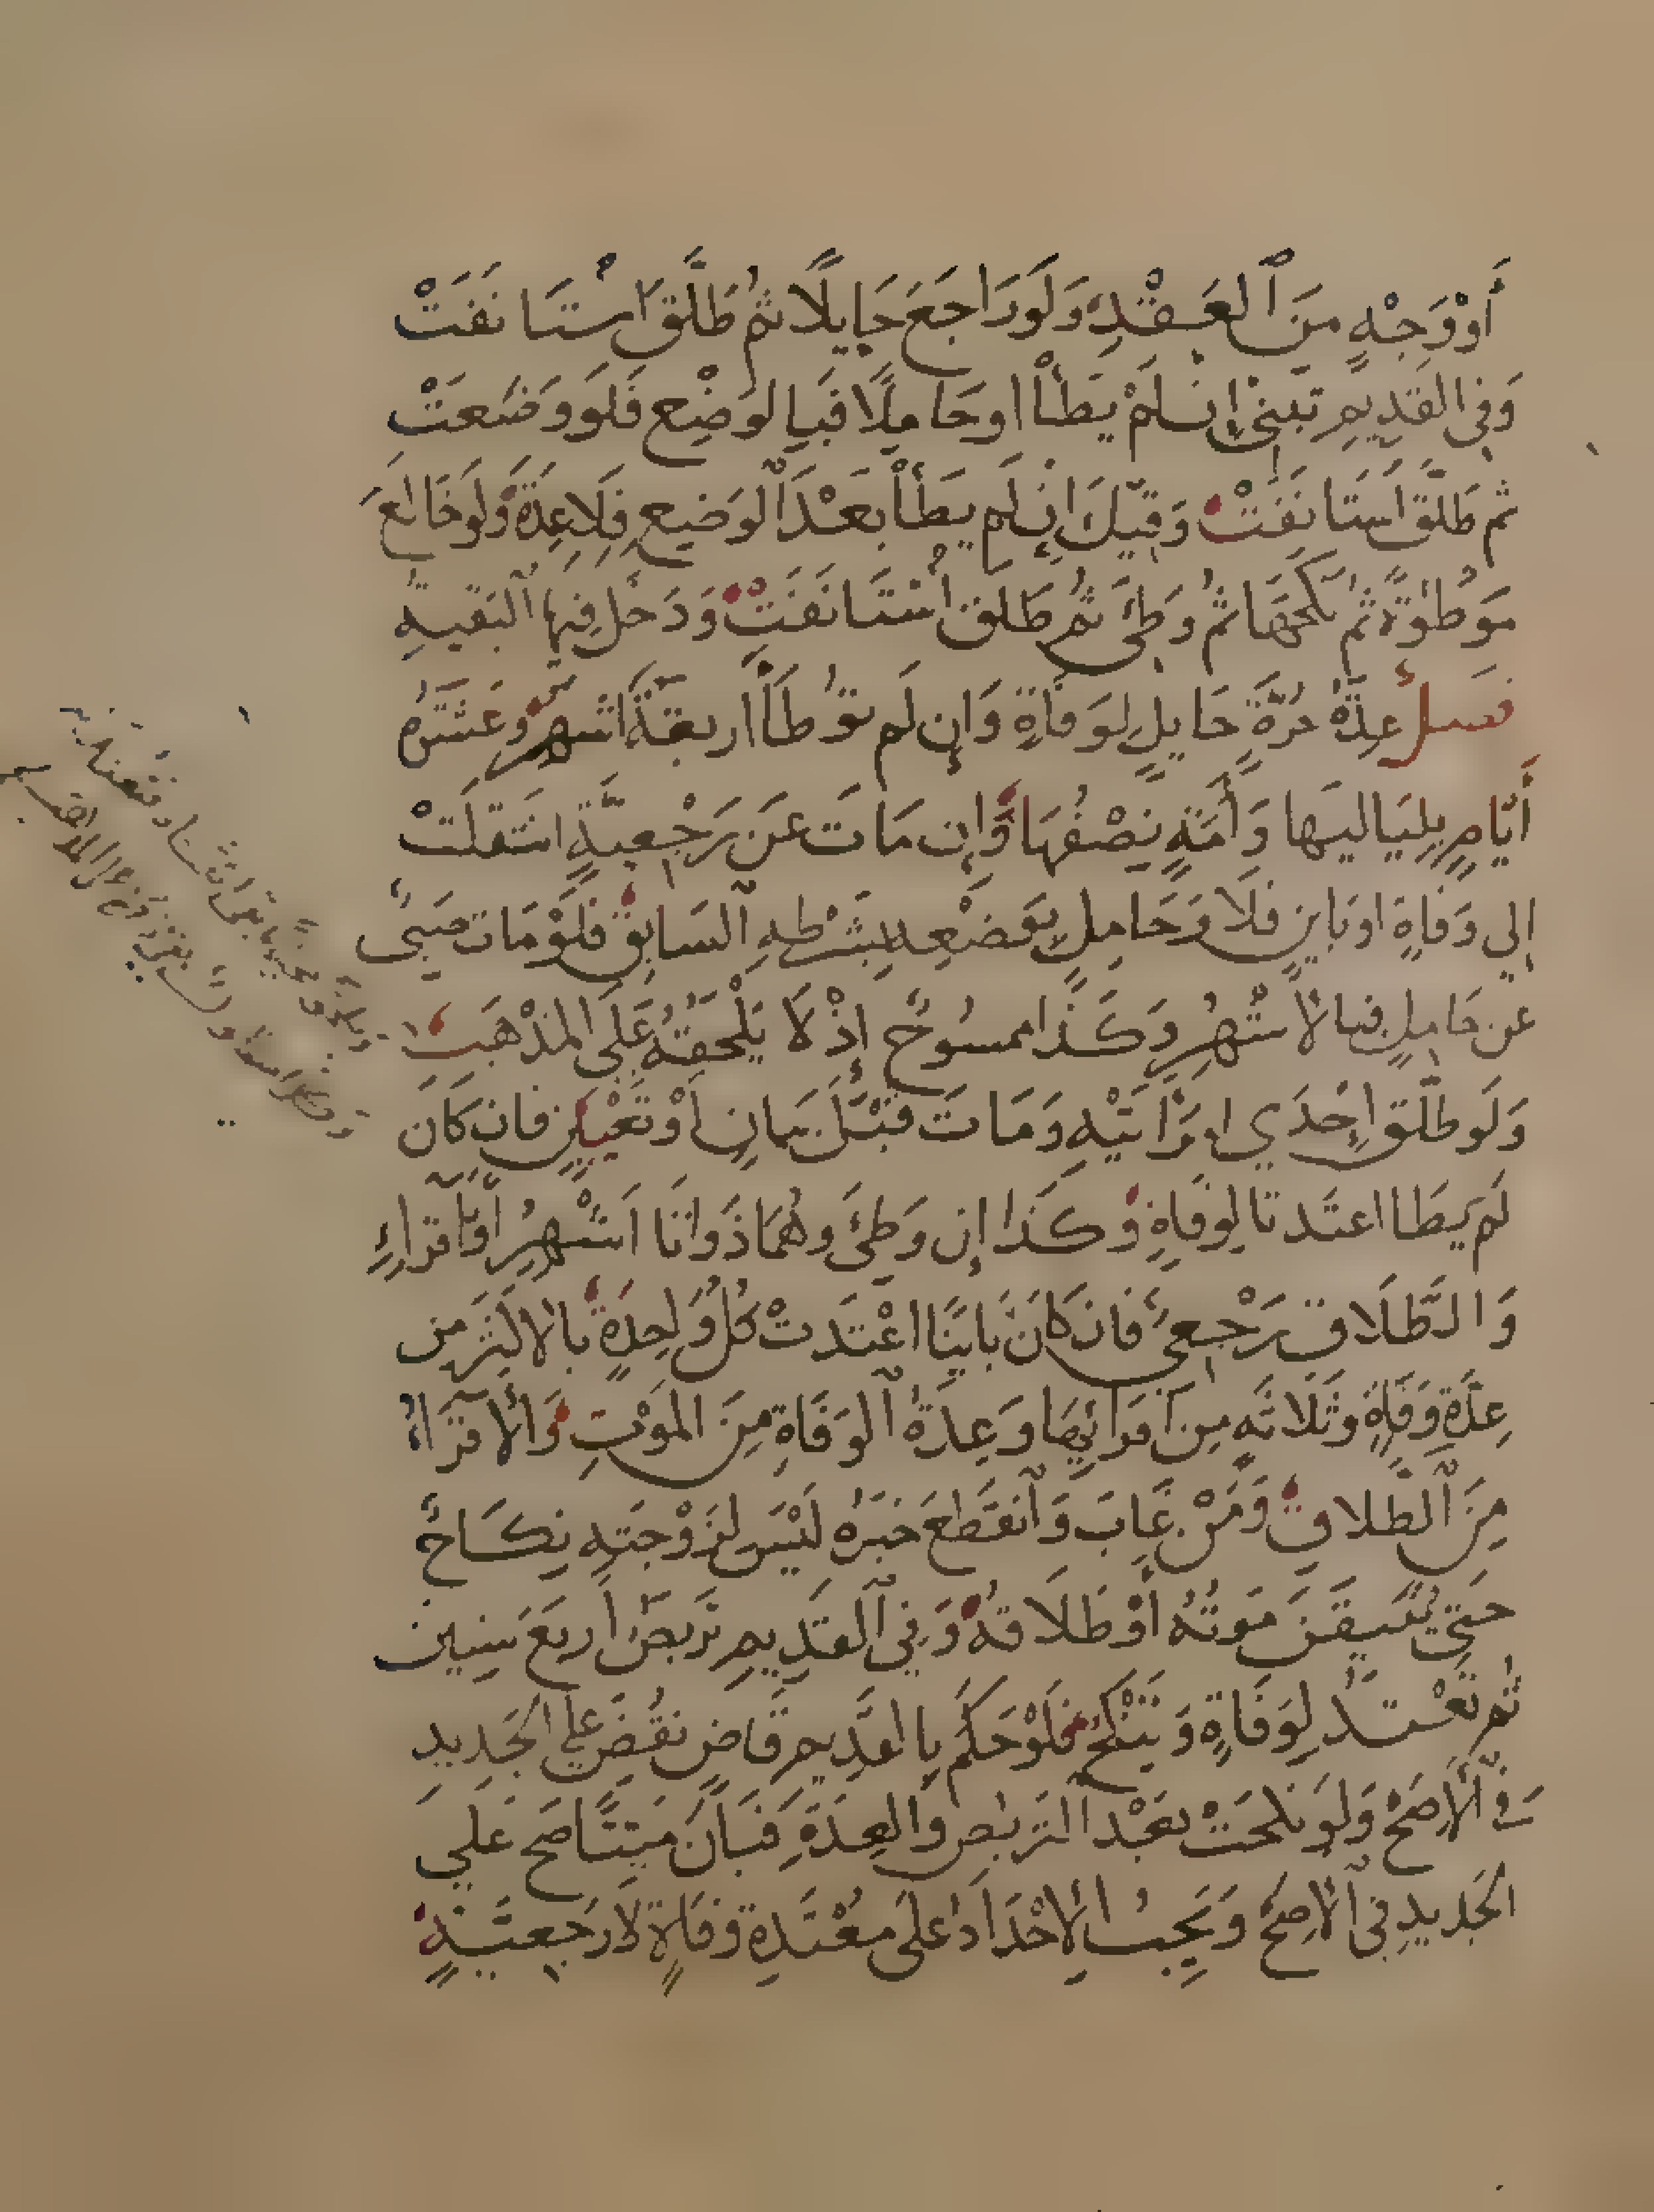 أَوْ وَجْهٍ مِنَ ٱلعَقْدِ وَلَو رَاجَعَ حَايِلًا ثُمَّ طَلَّقَ اسْتَانَفَتْ
وَفِي القَدِيمِ تَبْنِي إِن لَمْ يَطَأْ اوحَامِلًا فَبِالوَضْعِ فَلَو وَضَعَتْ
ثم طَلَّقَ اسْتَانَفَتْ وَقِيلَ إِن لَم يَطَأْ بَعْدَ الوَضعِ فَلَا عِدَّةَ وَلَو خَالَعَ
مَوْطُؤةً ثُم نَكَحَهَا ثُمَّ وَطِئَ ثُمَّ طَلَّقَ اسْتَانَفَتْ وَدَخَلَ فِيهَا ٱلبَقيةُ
فَصلٌ عِدَّةُ حُرَّةٍ حَايِلٍ لِوَفَاةٍ وَإِن لَم تُوطَأْ اربَعَةُ اشهُرٍ وَعَشَرَةُ
أَيَّامٍ بِلَيَاليهَا وَأَمَةٍ نِصْفُهَا وَإِن مَاتَ عَن رَجْعِيَّةٍ انتَقَلَتْ
إلى وَفَاةٍ اوبَاينٍ فَلَا وَحَامِلٍ بِوَضْعِهِ بِشَرْطِهِ ٱلسَابِقِ فَلَوْ مَات صَبِيٌّ
عن حَامِلٍ فبالأشْهُرِ وَكَذَا ممسُوحٌ إِذْ لَا يَلْحَقُهُ عَلَى المَذْهَبِ
وَلَو طلَّق إِحْدَي امرَأَتَيْهِ وَمَاتَ قَبْلَ بَيَانٍ أَوْ تَعْيِينٍ فان كَانَ
لَم يَطَا اعتَدتا لوفَاةٍ وَكَذَا إِن وَطِئَ وهُمَا ذَوَاتَا اَشْهُرٍ اوْ أَقراءٍ
وَالطَّلَاق رَجْعِيٌّ فَان كَانَ بَايِنًا اعْتَدتْ كُلُّ وَاحِدَةٍ بالاكثَرِ مِن
عِدَّةِ وَفَاةٍ وَثَلَاثَةٍ مِن أَقرَائِهَا وَعِدةُ ٱلوَفَاةِ مِنَ المَوْتِ وَالأَقرَاءُ
مِنَ ٱلطَّلَاقِ وَمَنْ غَابَ وَٱنقَطعَ خَبَرُهُ لَيْسَ لِزَوْجَتِهِ نِكَاحٌ
حَتى يُتيقنَ مَوتُهُ أَوْ طَلَاقُهُ وَفِي ٱلقَدِيمِ تَربصُ أَربعَ سِنِين
ثم تَعْتَدُّ لِوَفَاةٍ وَتَنْكحُ فَلَوْ حَكَمَ بِالقَدِيمِ قَاضٍ نُقِضَ علي الجَدِيدِ
في ٱلأَصَحِّ وَلَو نكحَتْ بَعْدَ التربُصِ وَالعِدَةِ فَبَانَ مَيتًا صَح عَلي
الجَديدِ في ٱلأصَحِّ وَيَجِبُ الإِحْدَادُ عَلَى مُعْتَدةِ وَفَاةٍ لَا رَجعِيَّةٍ